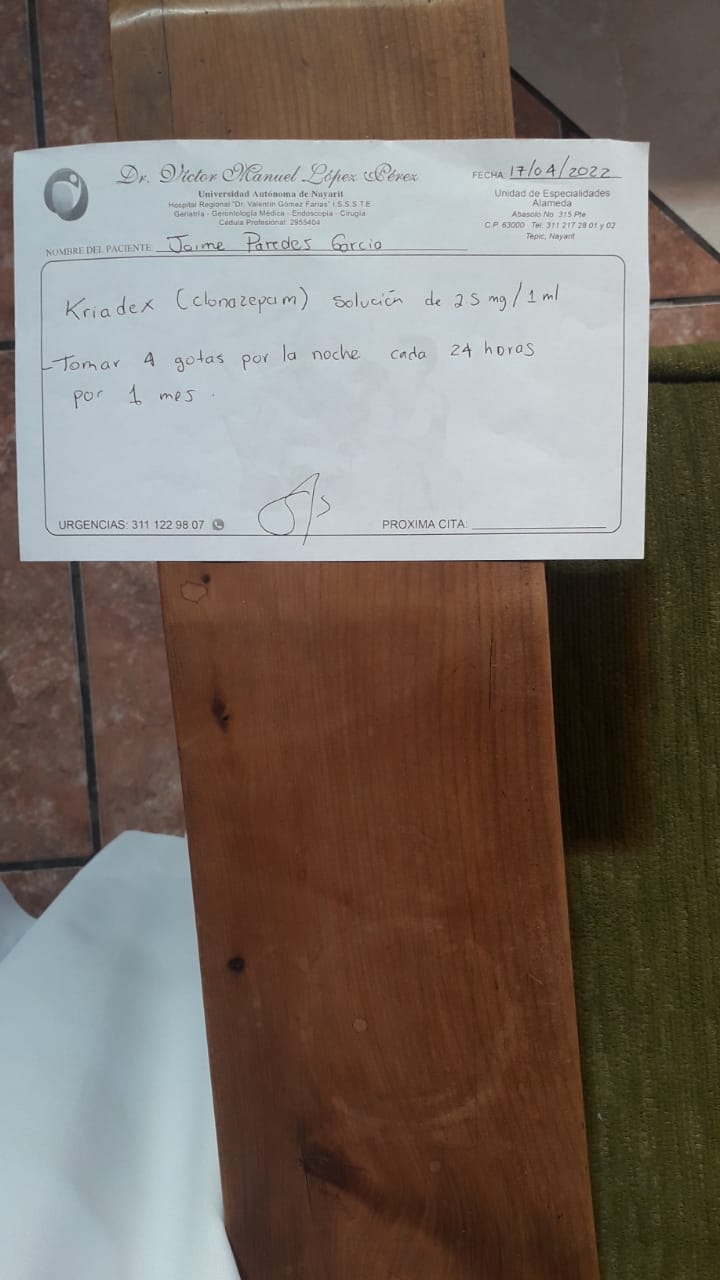 Dr. Víctor Manuel López Pérez
FECHA: 17/04/2022
Universidad Autónoma de Nayarit
Hospital Regional "Dr. Valentín Gómez Farias" I.S.S.S.T.E
Geriatría - Gerontología Médica - Endoscopia - Cirugía
Cédula Profesional: 2955404
Unidad de Especialidades
Alameda
Abasolo No. 315 Pte.
C.P. 63000 Tel. 311 217 28 01 y 02
Tepic, Nayarit
NOMBRE DEL PACIENTE: Jaime Paredes Garcia
Kriadex (clonazepam) solución de 2.5 mg/1 ml
-Tomar 4 gotas por la noche cada 24 horas
por 1 mes.
URGENCIAS: 311 122 98 07
PROXIMA CITA: